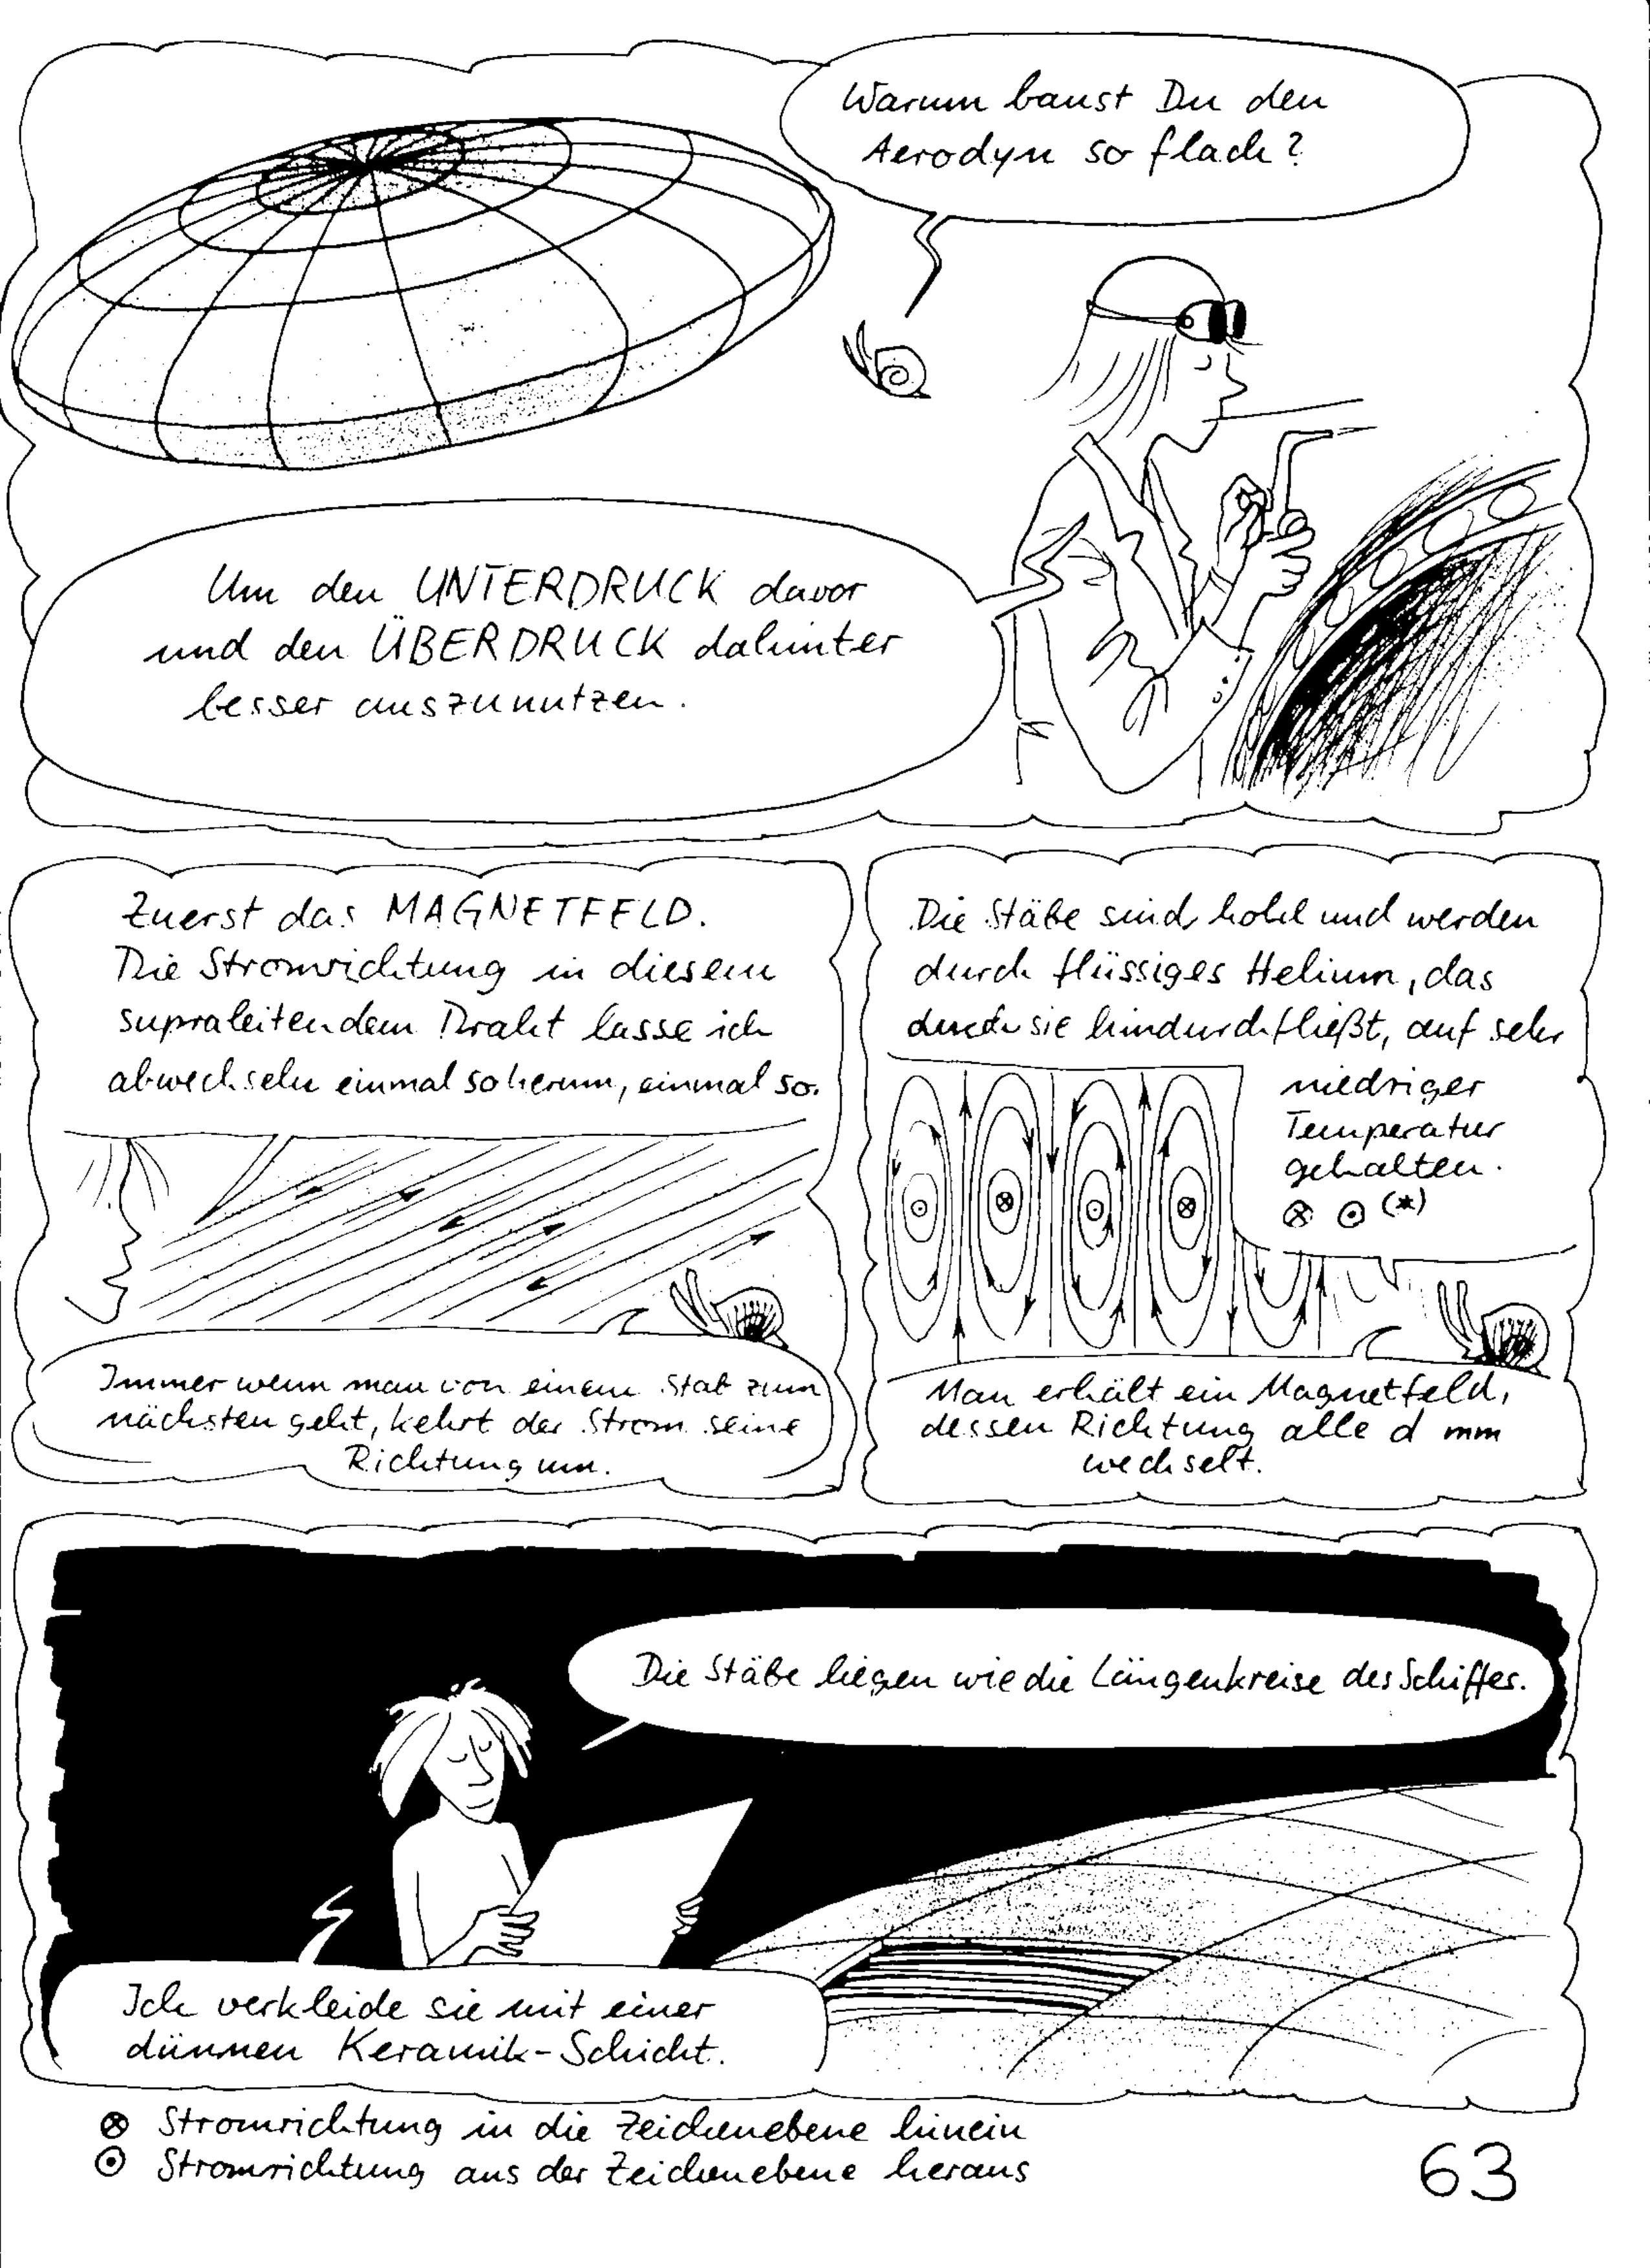 Warum baust Du den
Aerodyn so flach?
Um den UNTERDRUCK davor
und den ÜBERDRUCK dahinter
besser auszunutzen.
Zuerst das MAGNETFELD.
Die Stromrichtung in diesem
supraleitendem Draht lasse ich
abwechseln einmal so herum, einmal so.
Immer wenn man von einem Stab zum
nächsten geht, kehrt der Strom seine
Richtung um.
Die Stäbe sind hohl und werden
durch flüssiges Helium, das
durch sie hindurchfließt, auf sehr
niedriger
Temperatur
gehalten.
⊗ ⊙ (*)
Man erhält ein Magnetfeld,
dessen Richtung alle d mm
wechselt.
Die Stäbe liegen wie die Längenkreise des Schiffes.
Ich verkleide sie mit einer
dünnen Keramik-Schicht.
⊗ Stromrichtung in die Zeichenebene hinein
⊙ Stromrichtung aus der Zeichenebene heraus
63